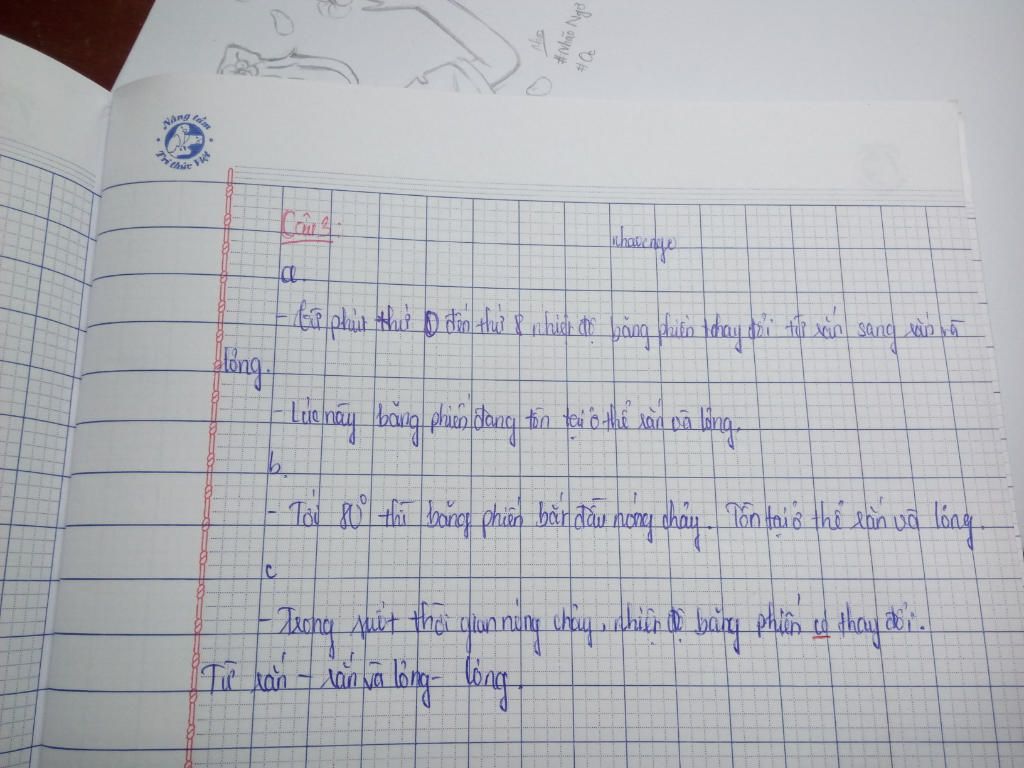 Nhp
#Nhão Ngơ
#Cc
Nâng tầm
Trí thức Việt
Câu 2:
a
- từ phút thứ 0 đến thứ 8 nhiệt độ băng phiến thay đổi từ rắn sang rắn và
lỏng.
- Lúc này băng phiến đang tồn tại ở thể rắn và lỏng.
b.
- Tới 80° thì băng phiến bắt đầu nóng chảy. Tồn tại ở thể rắn và lỏng.
c
- Trong suốt thời gian nóng chảy, nhiệt độ băng phiến có thay đổi.
Từ rắn - rắn và lỏng - lỏng.